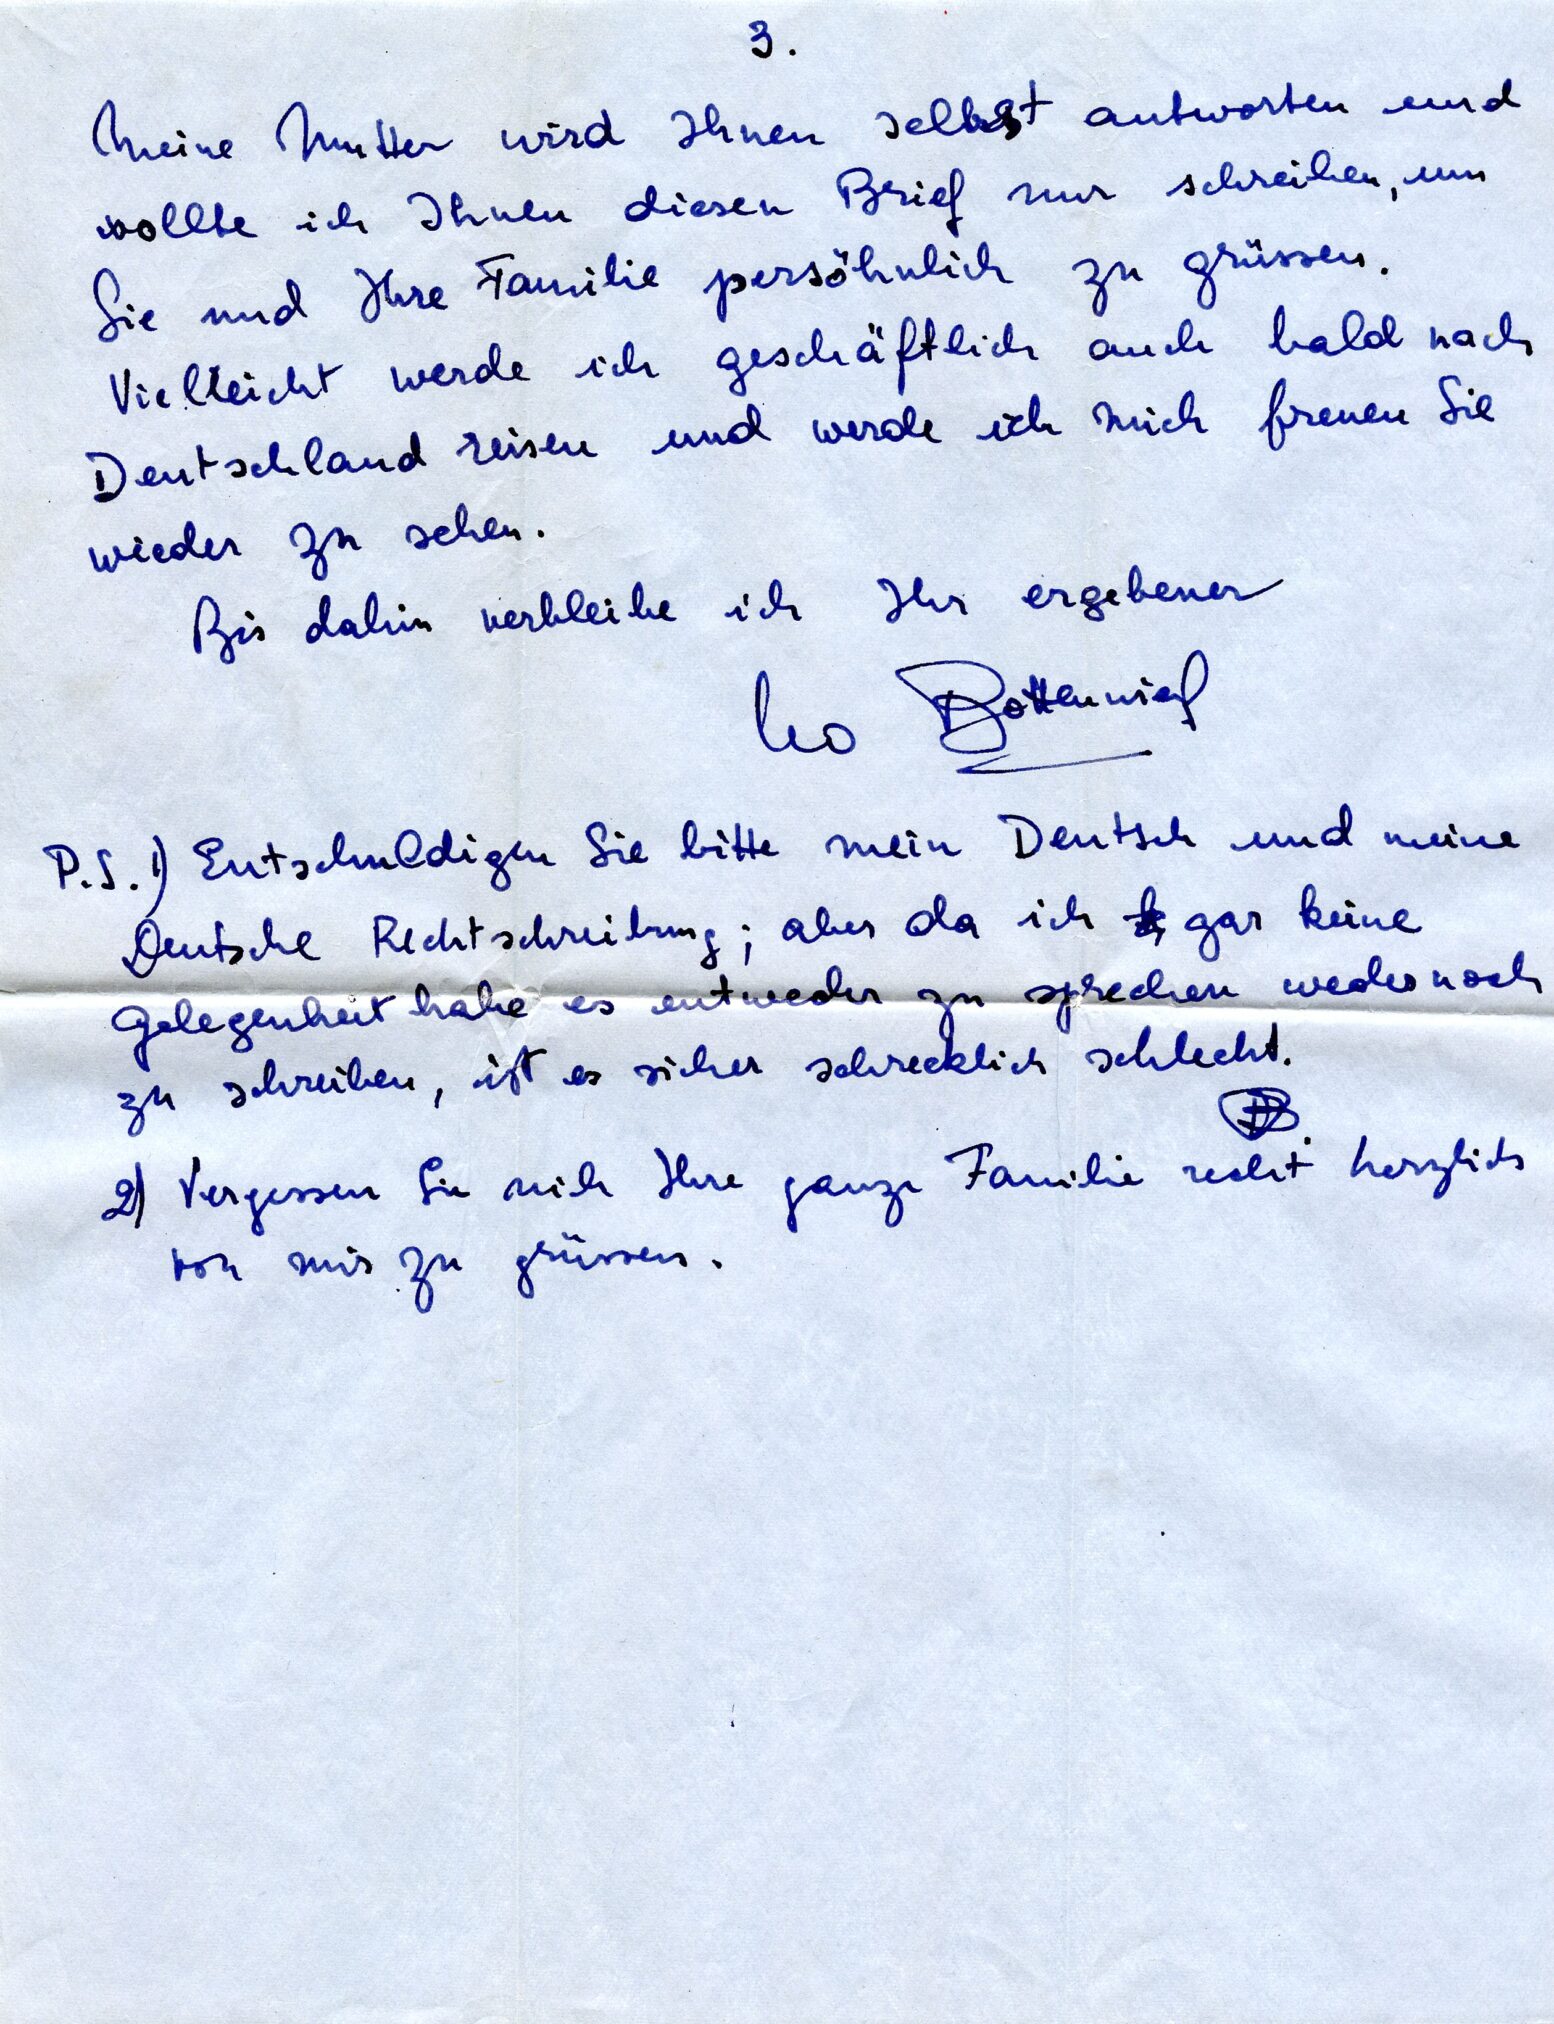 3.
Meine Mutter wird Ihnen selbst antworten und
wollte ich Ihnen diesen Brief nur schreiben, um
Sie und Ihre Familie persöhnlich zu grüssen.
Vielleicht werde ich geschäftlich auch bald nach
Deutschland reisen und werde ich mich freuen Sie
wieder zu sehen.
Bis dahin verbleibe ich Ihr ergebener
Leo
P.S. 1) Entschuldigen Sie bitte mein Deutsch und meine
Deutsche Rechtschreibung; aber da ich gar keine
Gelegenheit habe es entweder zu sprechen weder noch
zu schreiben, ist es sicher schrecklich schlecht.
2) Vergessen Sie nich Ihre ganze Familie recht herzlich
von mir zu grüssen.